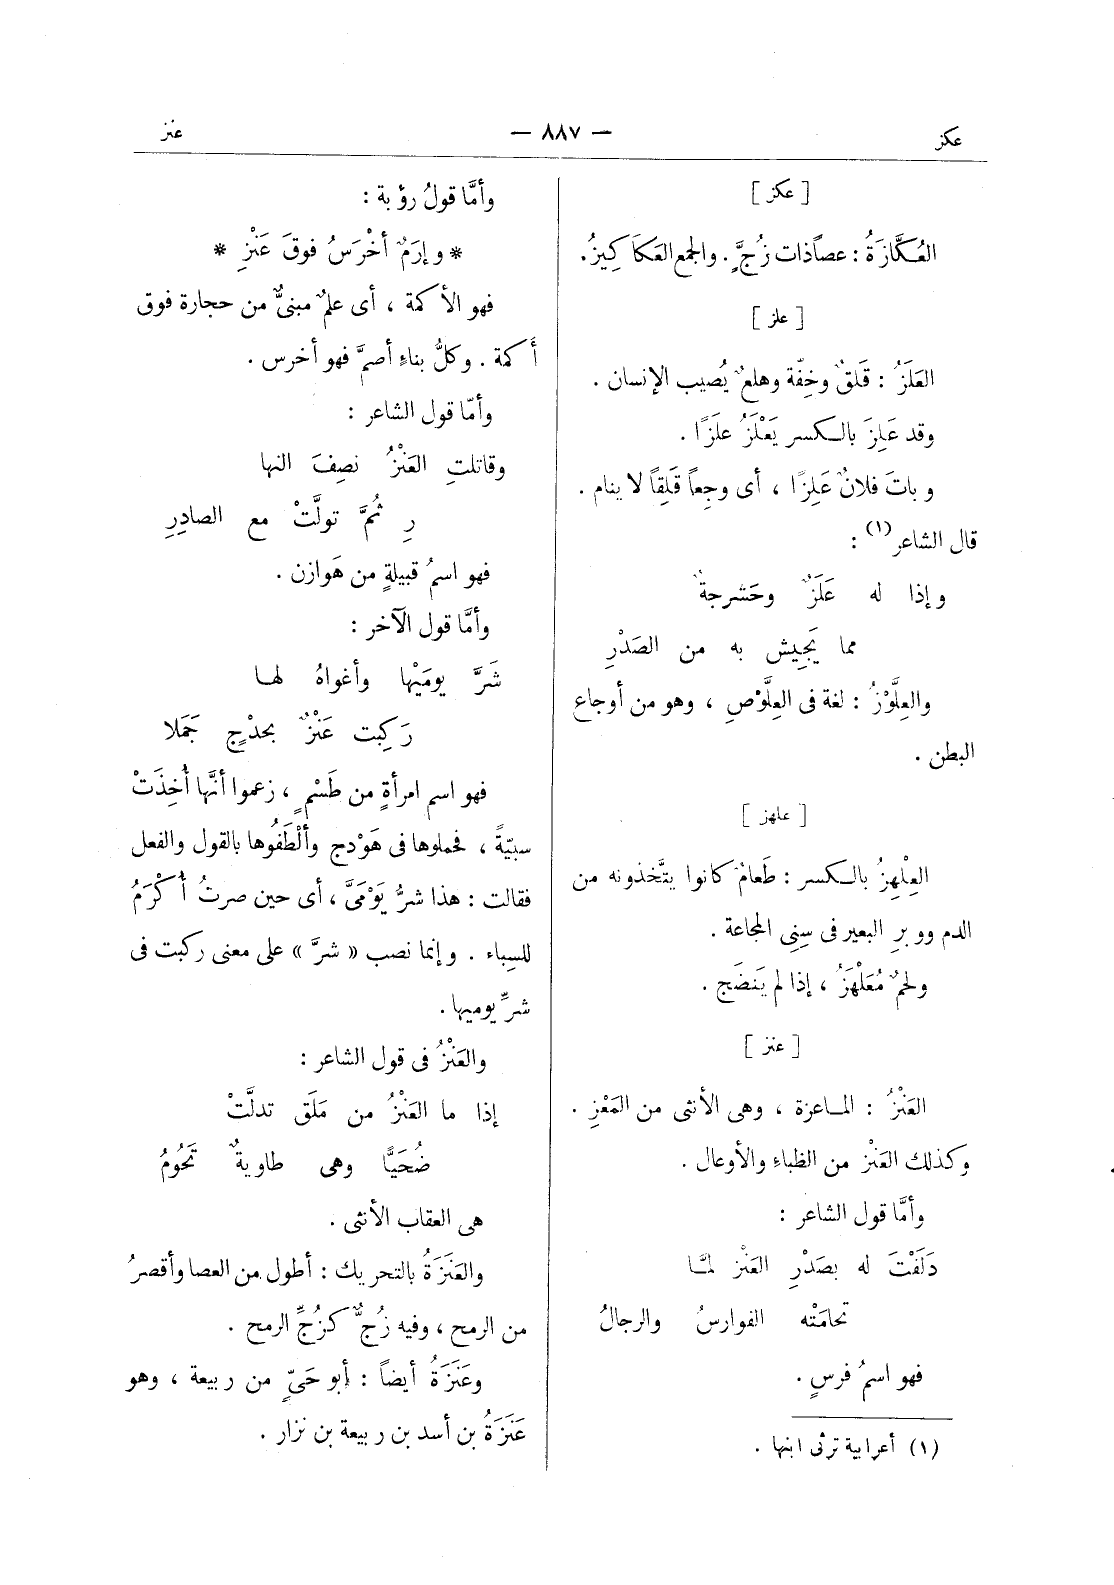 عكز
— ٨٨٧ —
عنز
[ عكز ]
العُكَّازَةُ : عصاً ذات زُجٍّ . والجمع العَكَاكِيزُ.
[ علز ]
العَلَزُ : قَلقٌ وخِفّة وهلعٌ يُصيب الإنسان .
وقد عَلِزَ بالكسر يَعْلَزُ علَزًا .
وباتَ فلانٌ عَلِزًا ، أى وجِعاً قَلِقاً لا ينام .
قال الشاعر (١) :
وإذا له عَلَزٌ وحَشرجةٌ
مما يَجِيش به من الصَدْرِ
والعِلَّوْزُ : لغة فى العِلَّوْصِ ، وهو من أوجاع
البطن .
[ علهز ]
العِلْهِزُ بالكسر : طَعامٌ كانوا يتَّخذونه من
الدم ووبرِ البعير فى سِنِى المجاعة .
ولحمٌ مُعَلْهَزٌ ، إذا لم يَنضَج .
[ عنز ]
العَنْزُ : الماعزة ، وهى الأنثى من المَعْزِ .
وكذلك العَنْزُ من الظباء والأوعال .
وأمَّا قول الشاعر :
دَلَفْتَ له بصَدْرِ العَنْزِ لمَّا
تحامَتْه الفوارسُ والرجالُ
فهو اسمُ فرسٍ .
(١) أعرابية ترثى ابنها .
وأمَّا قولُ رؤبة :
* وإرَمٌ أخْرَسُ فوقَ عَنْزِ *
فهو الأكمة ، أى علمٌ مبنىٌّ من حجارة فوق
أَكمة . وكلُّ بناءٍ أصمَّ فهو أخرس .
وأمّا قول الشاعر :
وقاتلتِ العَنْزُ نصِفَ النها
رِ ثُمَّ تولَّتْ مع الصادِرِ
فهو اسمُ قبيلةٍ من هَوازن .
وأمَّا قول الآخر :
شَرَّ يومَيْها وأغواهُ لها
رَكِبت عَنْزٌ بحدْجٍ جَمَلا
فهو اسم امرأةٍ من طَسْمٍ ، زعموا أنَّها أُخِذَتْ
سبيّةً ، فحملوها فى هَوْدج وألْطَفُوها بالقول والفعل
فقالت : هذا شرُّ يَوْمَىَّ ، أى حين صرتُ أُكْرَمُ
للسِباء . وإنما نصب « شرَّ » على معنى ركبت فى
شرِّ يوميها .
والعَنْزُ فى قول الشاعر :
إذا ما العَنْزُ من مَلَق تدلَّتْ
ضُحَيًّا وهى طاويةٌ تَحُومُ
هى العقاب الأنثى .
والعَنَزَةُ بالتحريك : أطول من العصا وأقصرُ
من الرمح ، وفيه زُجٌّ كزُجِّ الرمح .
وعَنَزَةُ أيضاً : أبو حَىٍّ من ربيعة ، وهو
عَنَزَةُ بن أسد بن ربيعة بن نزار .